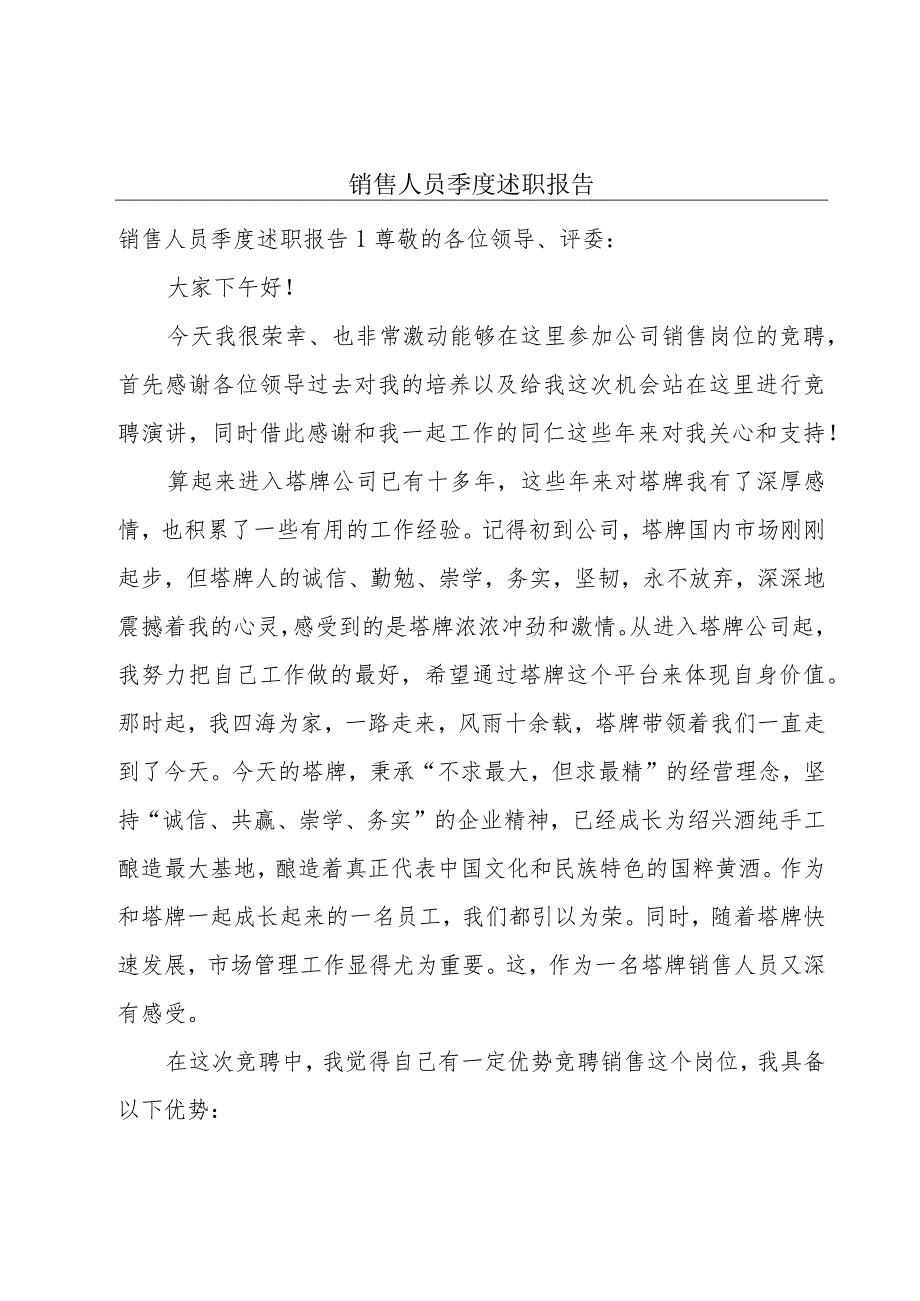 销售人员季度述职报告
销售人员季度述职报告1尊敬的各位领导、评委：
大家下午好！
今天我很荣幸、也非常激动能够在这里参加公司销售岗位的竞聘，
首先感谢各位领导过去对我的培养以及给我这次机会站在这里进行竞
聘演讲，同时借此感谢和我一起工作的同仁这些年来对我关心和支持！
算起来进入塔牌公司已有十多年，这些年来对塔牌我有了深厚感
情，也积累了一些有用的工作经验。记得初到公司，塔牌国内市场刚刚
起步，但塔牌人的诚信、勤勉、崇学，务实，坚韧，永不放弃，深深地
震撼着我的心灵，感受到的是塔牌浓浓冲劲和激情。从进入塔牌公司起，
我努力把自己工作做的最好，希望通过塔牌这个平台来体现自身价值。
那时起，我四海为家，一路走来，风雨十余载，塔牌带领着我们一直走
到了今天。今天的塔牌，秉承“不求最大，但求最精”的经营理念，坚
持“诚信、共赢、崇学、务实”的企业精神，已经成长为绍兴酒纯手工
酿造最大基地，酿造着真正代表中国文化和民族特色的国粹黄酒。作为
和塔牌一起成长起来的一名员工，我们都引以为荣。同时，随着塔牌快
速发展，市场管理工作显得尤为重要。这，作为一名塔牌销售人员又深
有感受。
在这次竞聘中，我觉得自己有一定优势竞聘销售这个岗位，我具备
以下优势：